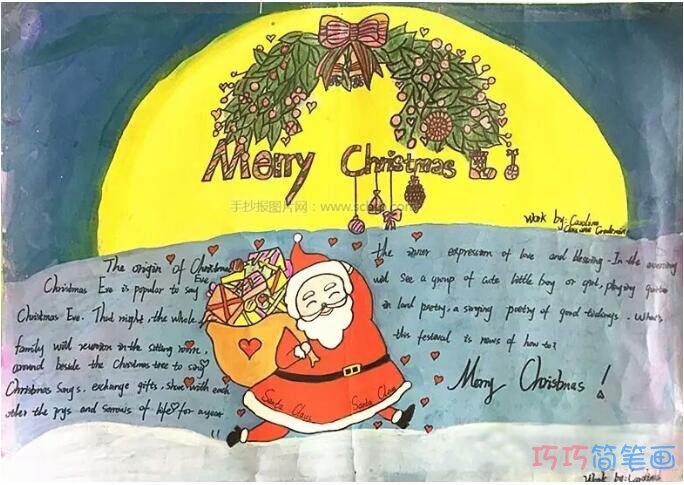 Merry Christmas
手抄报图片网：www.sc
Work by: Caroline
The origin of Christmas
Eve
Christmas Eve is popular to say
Christmas Eve. That night, the whole
family will reunion in the sitting room,
around beside the Christmas tree to sing
Christmas songs, exchange gifts, share with each
other the joys and sorrows of life for a year
!!
the inner expression of love and blessing. In the evening
will see a group of cute little boy or girl, playing guitar
in land poetry, a singing poetry of good tidings. What's
this festival is news of how to?
Merry Christmas!
Santa Claus
Santa Claus
巧巧简笔画
Work by: Caroline